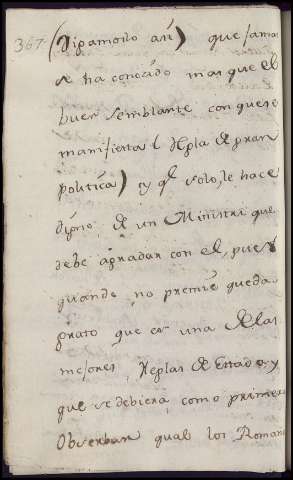 367
(Digamoslo asi) que jamas
se ha conozido mas que el
buen semblante con que se
manifiesta (Regla de gran
politica) y q.e solo, le hace
digno, de un Ministro que
debe agradar con el, pues
quando no premie queda
grato que es una de las
mejores Reglas de Estado, y
que se debiera, como primer
Observar qual los Roman